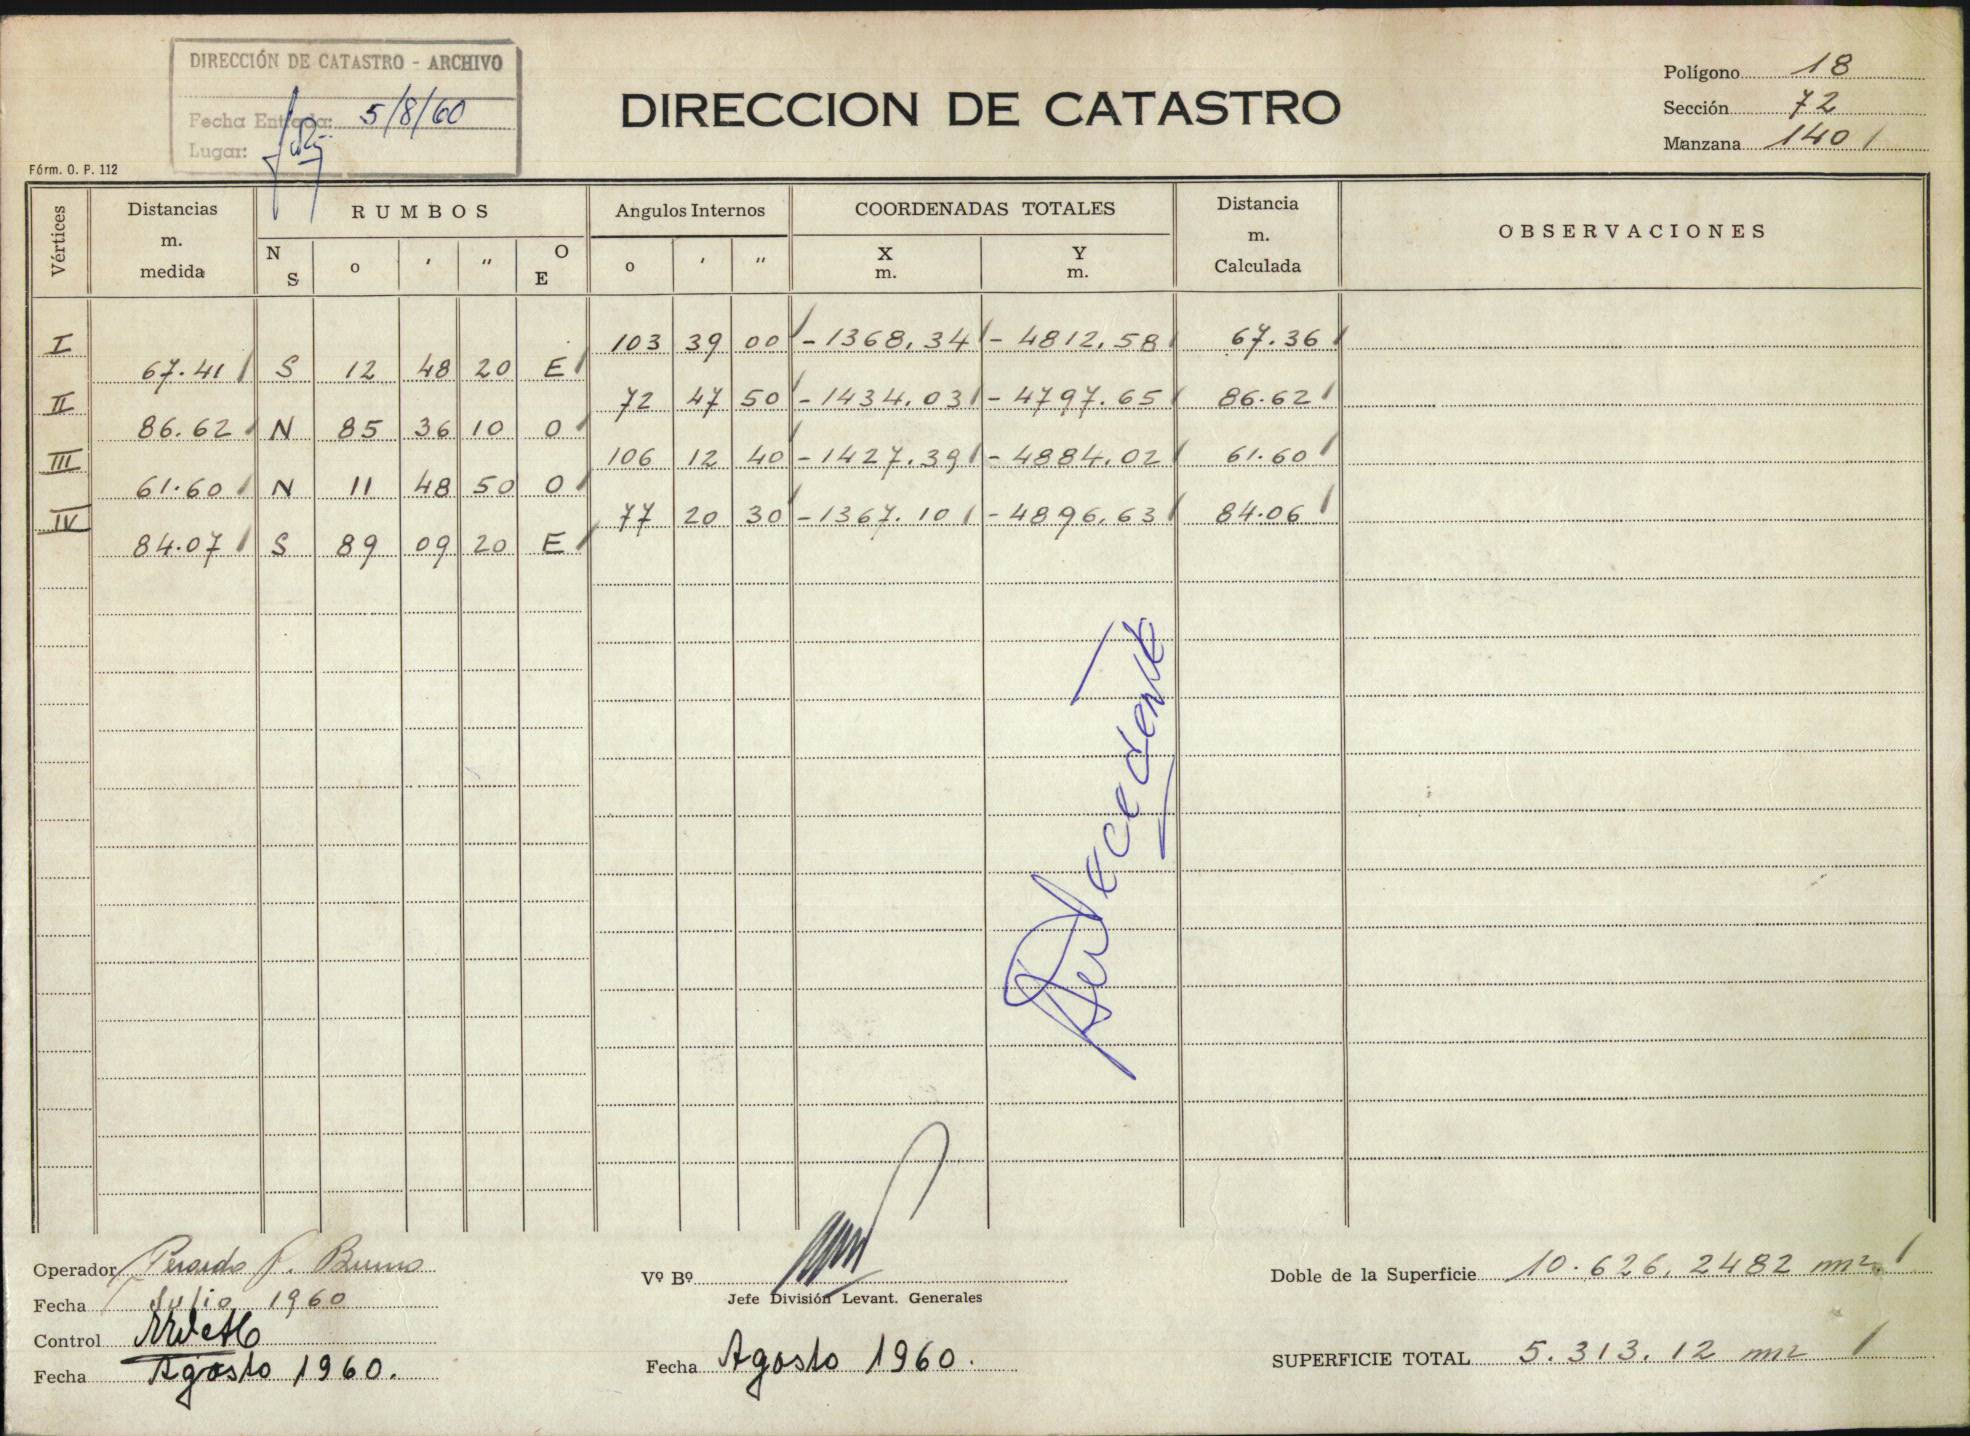 DIRECCIÓN DE CATASTRO - ARCHIVO
Fecha Entrada: 5/8/60
Lugar:
Fórm. O. P. 112
DIRECCION DE CATASTRO
Polígono 18
Sección 72
Manzana 140
Vértices Distancias m. medida RUMBOS Angulos Internos COORDENADAS TOTALES Distancia m. Calculada OBSERVACIONES
N S o ' " O E o ' " X m. Y m.
I 103 39 00 -1368,34 -4812,58 67.36
67.41 S 12 48 20 E
II 72 47 50 -1434.03 -4797.65 86.62
86.62 N 85 36 10 O
III 106 12 40 -1427.39 -4884.02 61.60
61.60 N 11 48 50 O
IV 77 20 30 -1367.10 -4896,63 84.06
84.07 S 89 09 20 E
Antecedente
Operador Bruno
Fecha Julio 1960
Control
Fecha Agosto 1960.
Vº Bº
Jefe División Levant. Generales
Fecha Agosto 1960.
Doble de la Superficie 10.626,2482 m2.
SUPERFICIE TOTAL 5.313,12 m2